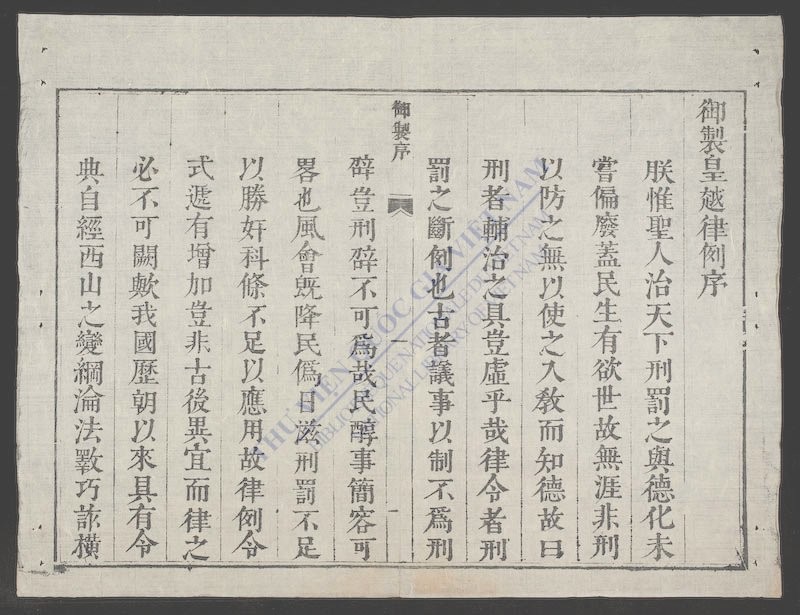 御製皇越律例序
朕惟聖人治天下刑罰之與德化未
嘗偏廢蓋民生有欲世故無涯非刑
以防之無以使之入教而知德故曰
刑者輔治之具豈虛乎哉律令者刑
罰之斷例也古者議事以制不爲刑
御製序
一
辟豈刑辟不可爲哉民醇事簡容可
畧也風會既降民僞日滋刑罰不足
以勝奸科條不足以應用故律例令
式遞有增加豈非古後異宜而律之
必不可闕歟我國歷朝以來具有令
典自經西山之變綱淪法斁巧詐橫
THƯ VIỆN QUỐC GIA VIỆT NAM
BIBLIOTHÈQUE NATIONALE DU VIETNAM
NATIONAL LIBRARY OF VIETNAM